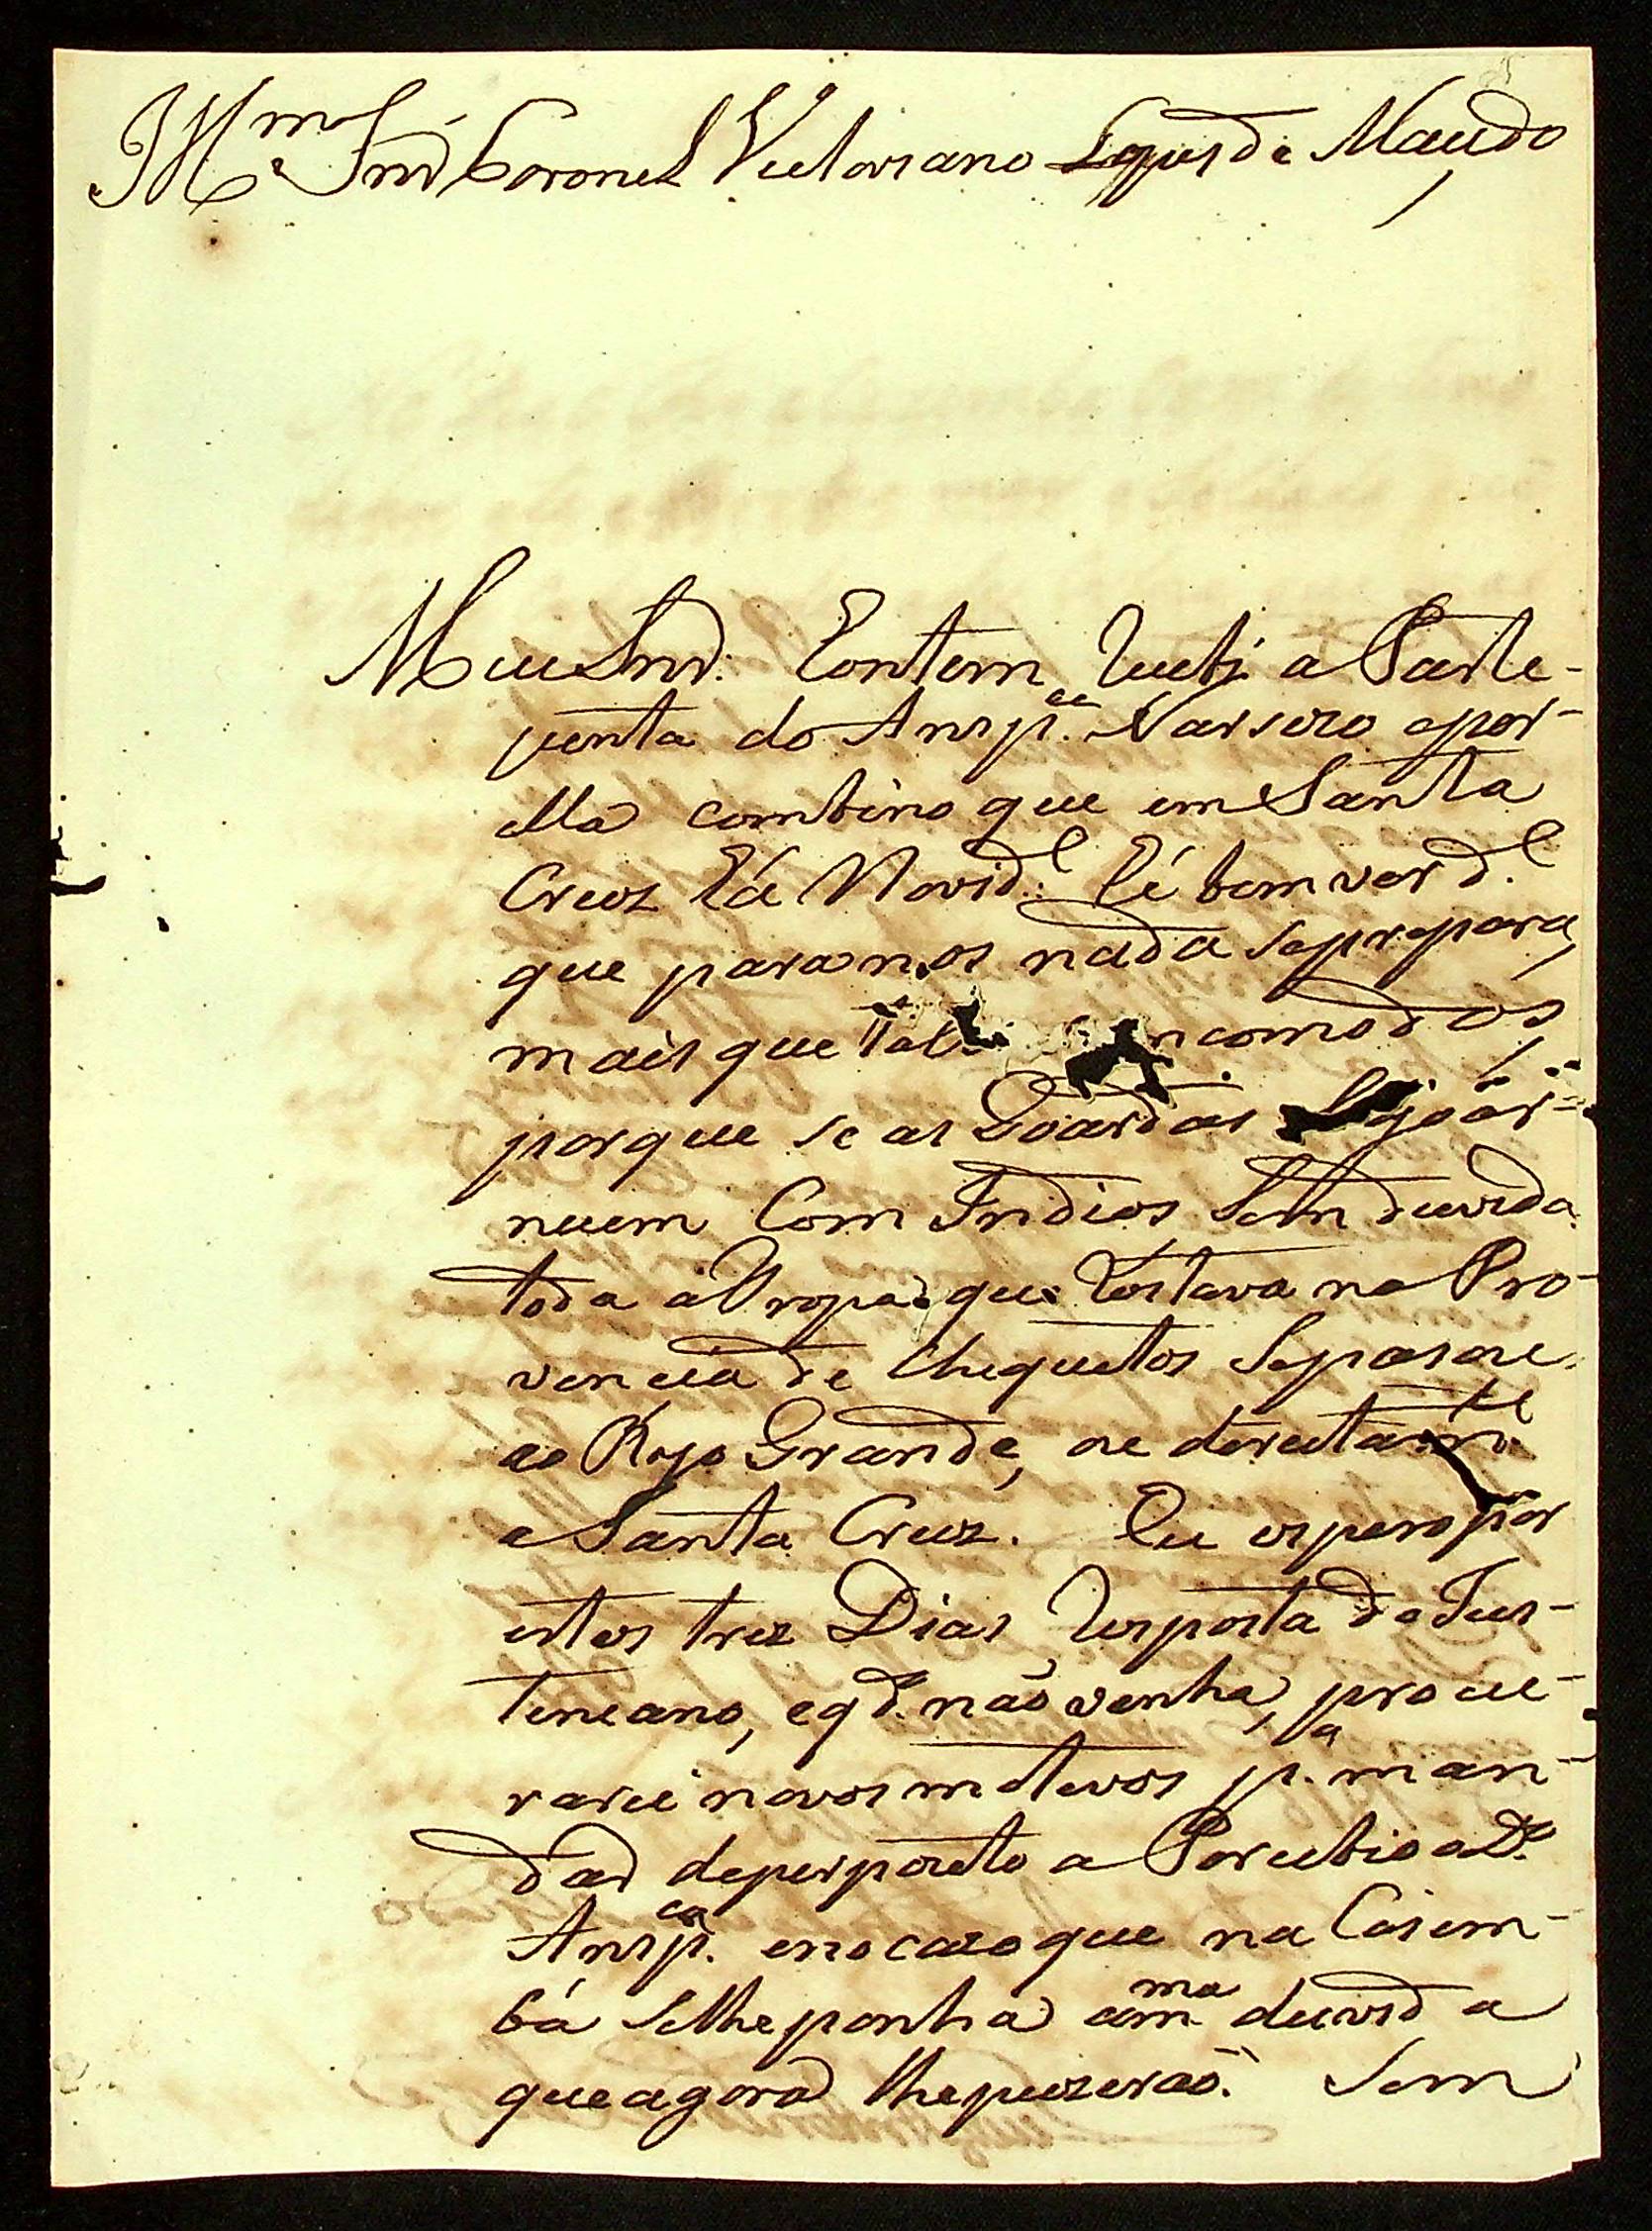 Illmo Snr Coronel Victoriano Lopes de Macedo
Meu Snr. Hontem recebi a Parte
junta do Ansp.ca Narcizo e por
ella combino que em Santa
Cruz há Novid.e hé bem verd.e
que para nós nada se prepara,
mais que incomodos,
porque se as Goardas guar-
necem Com Indios, Sem duvida
toda a Tropa que estava na Pro-
vencia de Chequitos Se pasou
ao Rijo Grande, ou diretam.te
a Santa Cruz. Eu espero por
estes trez Dias resposta de Jus-
teneano, e q.do não venha, procu-
rarei novos motevos p.a man-
dar de perpozito a Porubio o D.o
Ansp.ca e no cazo que na Casem-
bá Selhe ponha a m.ma duvida
que agora lhe puzerão. Sem